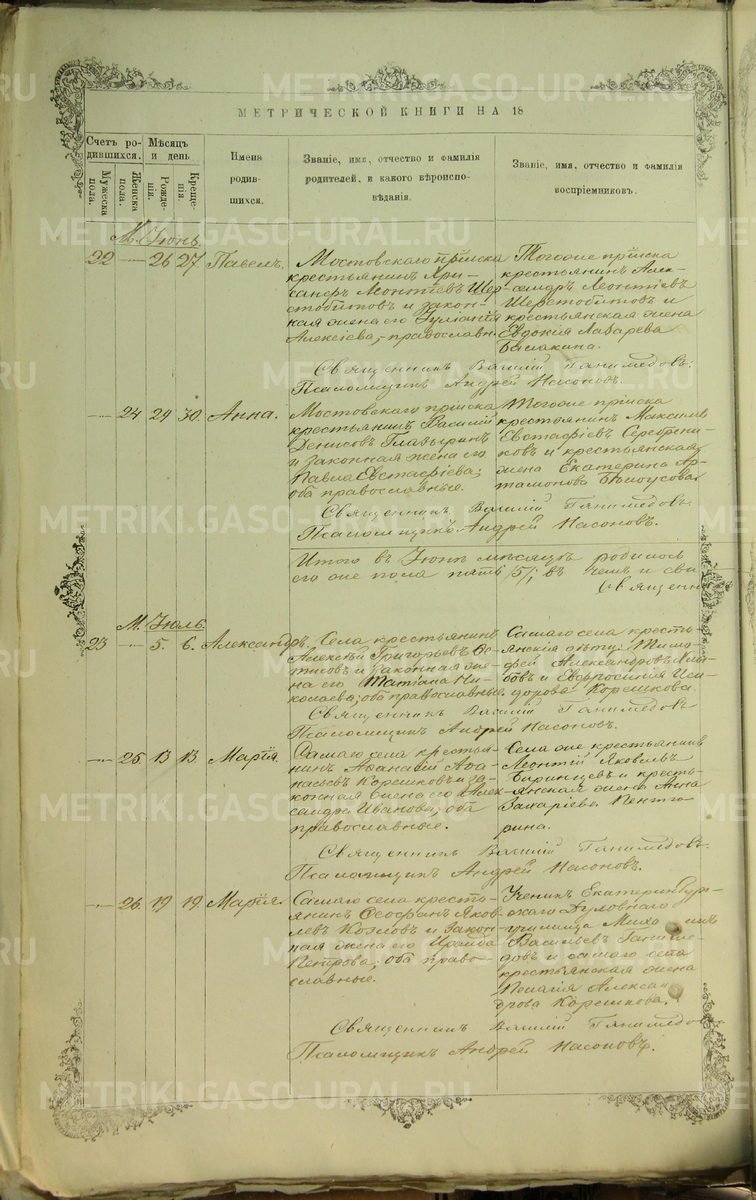 METRIKI.GASO-URAL.RU
МЕТРИЧЕСКОЙ КНИГИ НА 18
Счетъ родившихся.
Мужеска пола.
Женска пола.
Мѣсяцъ и день
Рожденія.
Крещенія.
Имена родившихся.
Званіе, имя, отчество и фамилія родителей, и какого вѣроисповѣданія.
Званіе, имя, отчество и фамилія воспріемниковъ.
М. Іюнь.
22 — 26 27. Павелъ.
Мостовскаго пріиска
крестьянинъ Хри-
санѳъ Леонтіевъ Шер-
стобитовъ и закон-
ная жена его Іуліанія
Алексіева, православн.
Тогоже пріиска
крестьянинъ Алек-
сандръ Леонтіевъ
Шерстобитовъ и
крестьянская жена
Евдокія Лазарева
Священникъ Василій Ганимедовъ.
Псаломщикъ Андрей Насоновъ.
— 24 29 30. Анна.
Мостовскаго пріиска
крестьянинъ Василій
Денисовъ Главыринъ
и законная жена его
Павла Евстафіева;
оба православные.
Тогоже пріиска
крестьянинъ Максимъ
Евстафіевъ Серебрени-
ковъ и крестьянская
жена Екатерина Ар-
тамонова Бѣлоусова.
Священникъ Василій Ганимедовъ.
Псаломщикъ Андрей Насоновъ.
Итого въ Іюнѣ мѣсяцѣ родилось
его же пола пять /5/; въ чемъ и сви
Священн
М. Іюль.
23 — 5. 6. Александръ.
Села крестьянинъ
Алексѣй Григорьевъ
и законная же-
на его Татіана Ни-
колаева; оба православные.
Самаго села кресть-
янскія дѣти: Тимо-
фей Александровъ
и Евфросинія Иси-
дорова Корешкова.
Священникъ Василій Ганимедовъ
Псаломщикъ Андрей Насоновъ.
— 25 13 13. Марія.
Самаго села крестья-
нинъ Аѳанасій Аѳа-
насьевъ Корешковъ и за-
конная жена его Алек-
сандра Иванова; оба
православные.
Села же крестьянинъ
Леонтій Яковлевъ
Биринцевъ и кресть-
янская жена Анна
Захаріева
Священникъ Василій Ганимедовъ.
Псаломщикъ Андрей Насоновъ.
— 26. 19 19. Марія.
Самаго села кресть-
янинъ Ѳеофанъ Яков-
левъ Козловъ и закон-
ная жена его Ираида
Петрова; оба право-
славные.
Ученикъ Екатеринбур-
скаго Духовнаго
училища
Васильевъ Ганиме-
довъ и самаго села
крестьянская жена
Пелагія Алексан-
дрова Корешкова.
Священникъ Василій Ганимедов
Псаломщикъ Андрей Насоновъ.